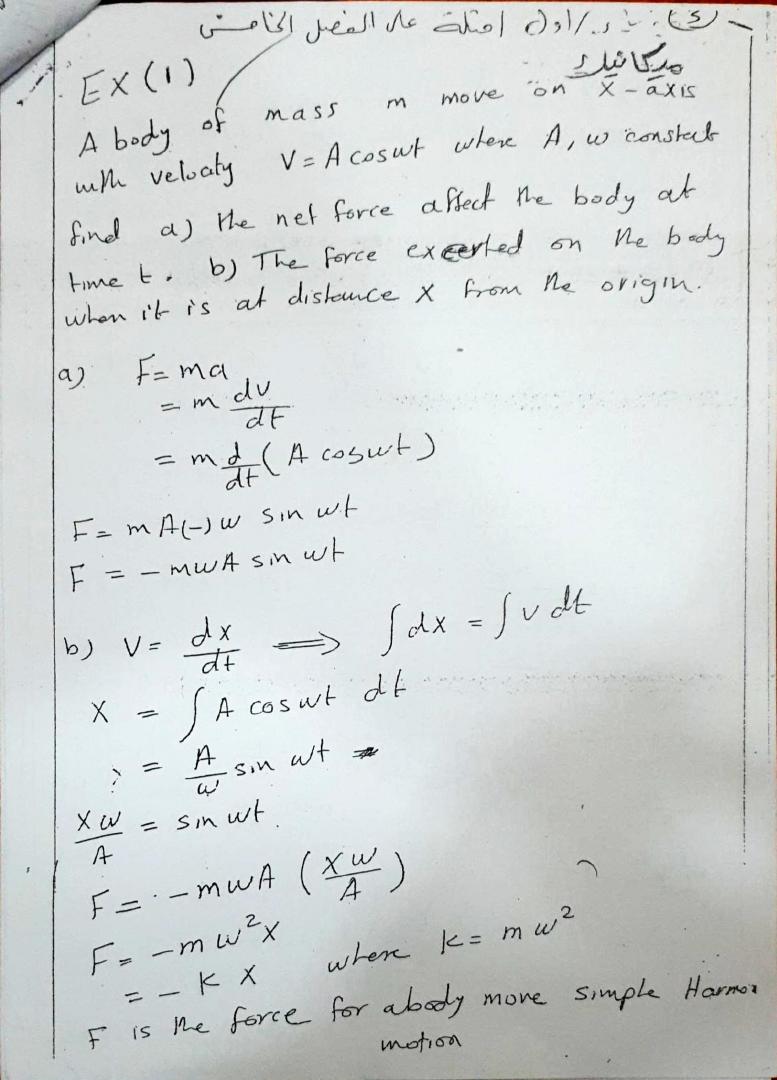 امثلة على الفصل الخامس
ميكانيك
EX (1)
A body of mass m move on X-axis
with velocity V = A coswt where A, w constant
find a) the net force affect the body at
time t. b) The force exerted on the body
when it is at distance X from the origin.
a) F = ma
= m dv/dt
= m d/dt (A coswt)
F = m A(-) w sin wt
F = - mwA sin wt
b) V = dx/dt ⟹ ∫dx = ∫v dt
X = ∫ A coswt dt
= A/w sin wt
Xw/A = sin wt
F = - mwA (Xw/A)
F = - m w² X
= - K X where K = m w²
F is the force for abody move simple Harmo
motion